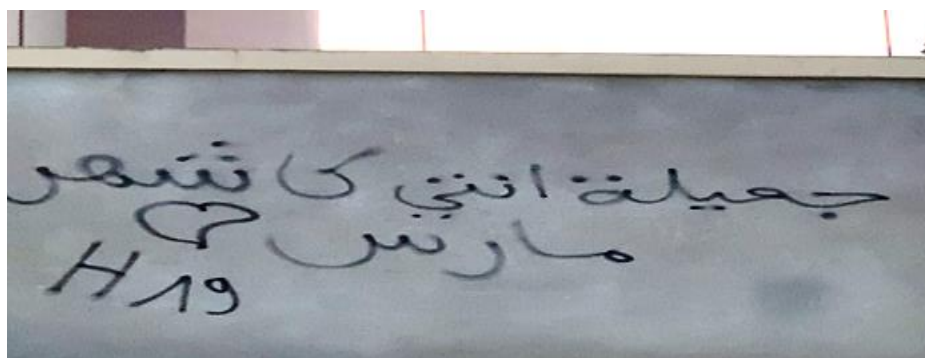 جميلة انتي كا شهر
مارس
H19